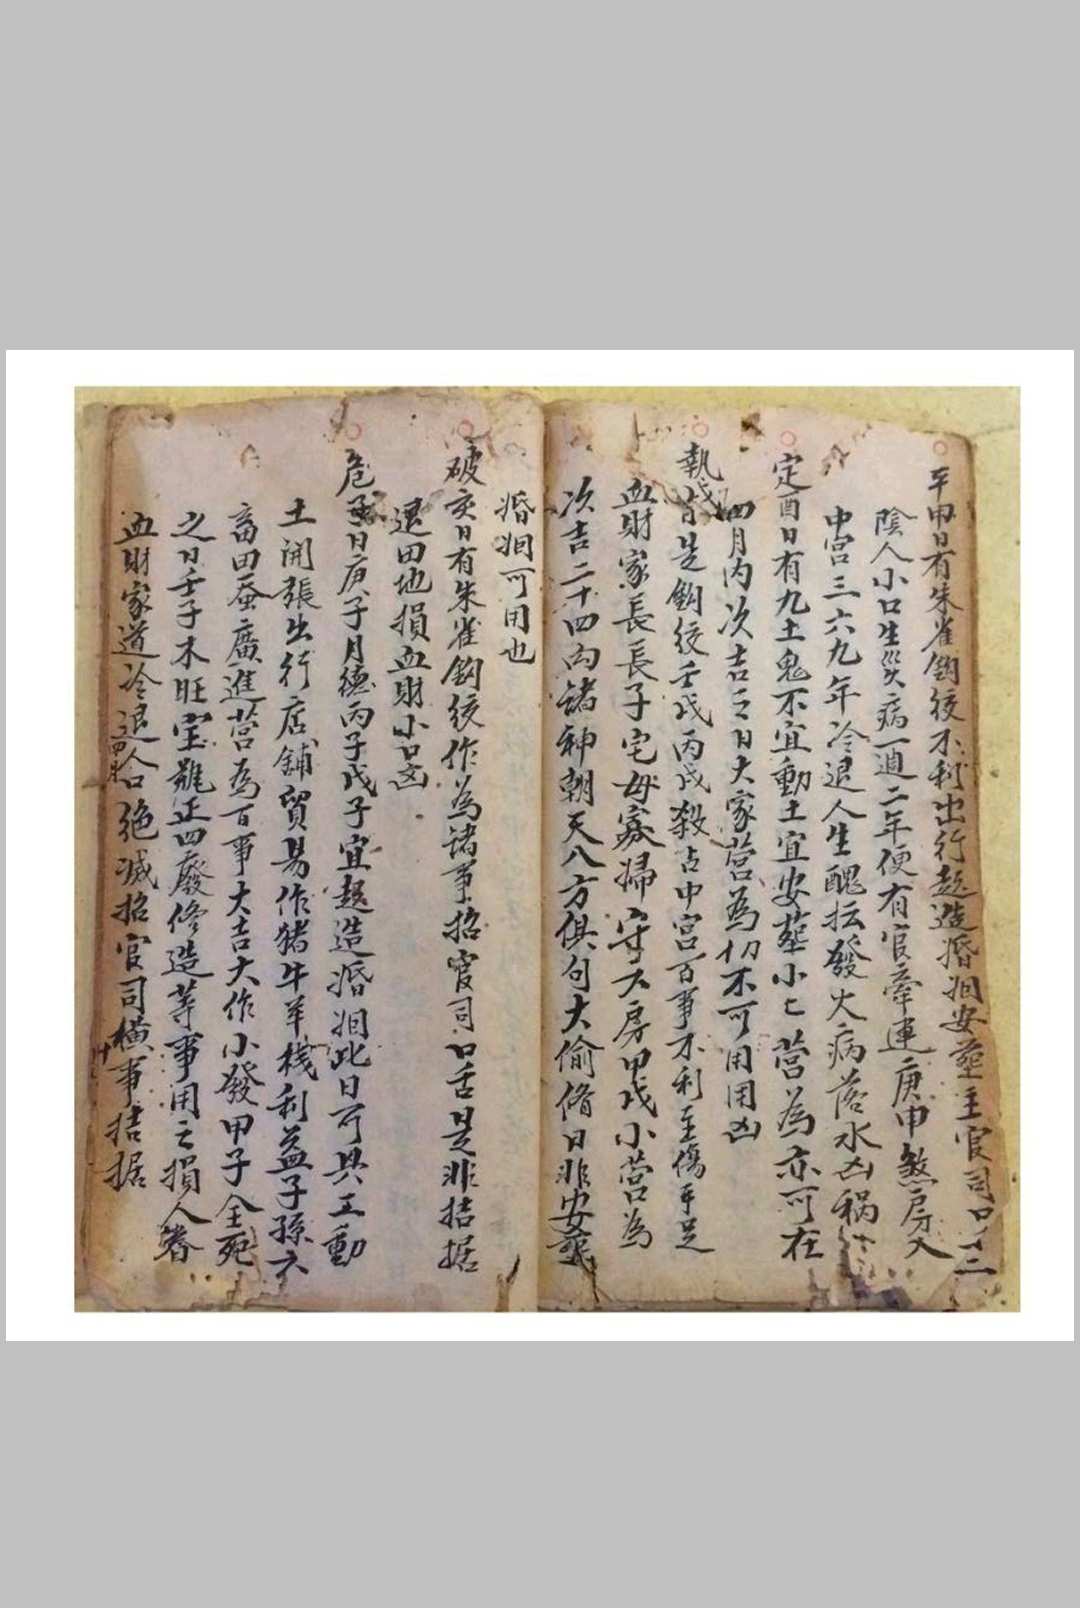 平申日有朱雀鈎絞不利出行起造婚姻安塟主官司口
陰人小口生災病一週二年便有官牽連庚申煞房入
中宮三六九年冷退人生醜抎發火病落水凶禍
定酉日有九土鬼不宜動土宜安塟小匕营為亦可在
四月内次吉之日大家营為切不可用用凶
執戌日是鈎絞壬戌丙戌殺占中宮百事不利主傷手足
血財家長長子宅母寡婦守大房甲戌小营為
次吉二十四向諸神朝天八方俱句大偷脩日非安塟
婚姻可用也
破亥日有朱雀鈎絞作為諸事招官司口舌是非拮据
退田地損血財小口凶
危子日庚子月德丙子戊子宜起造婚姻此日可兴工動
土開張出行店鋪貿易作猪牛羊棧利益子孫六
畜田蚕廣進营為百事大吉大作小發甲子全死
之日壬子木旺宝雖正四廢修造等事用之損人眷
血財家道冷退人口絶滅招官司橫事拮据